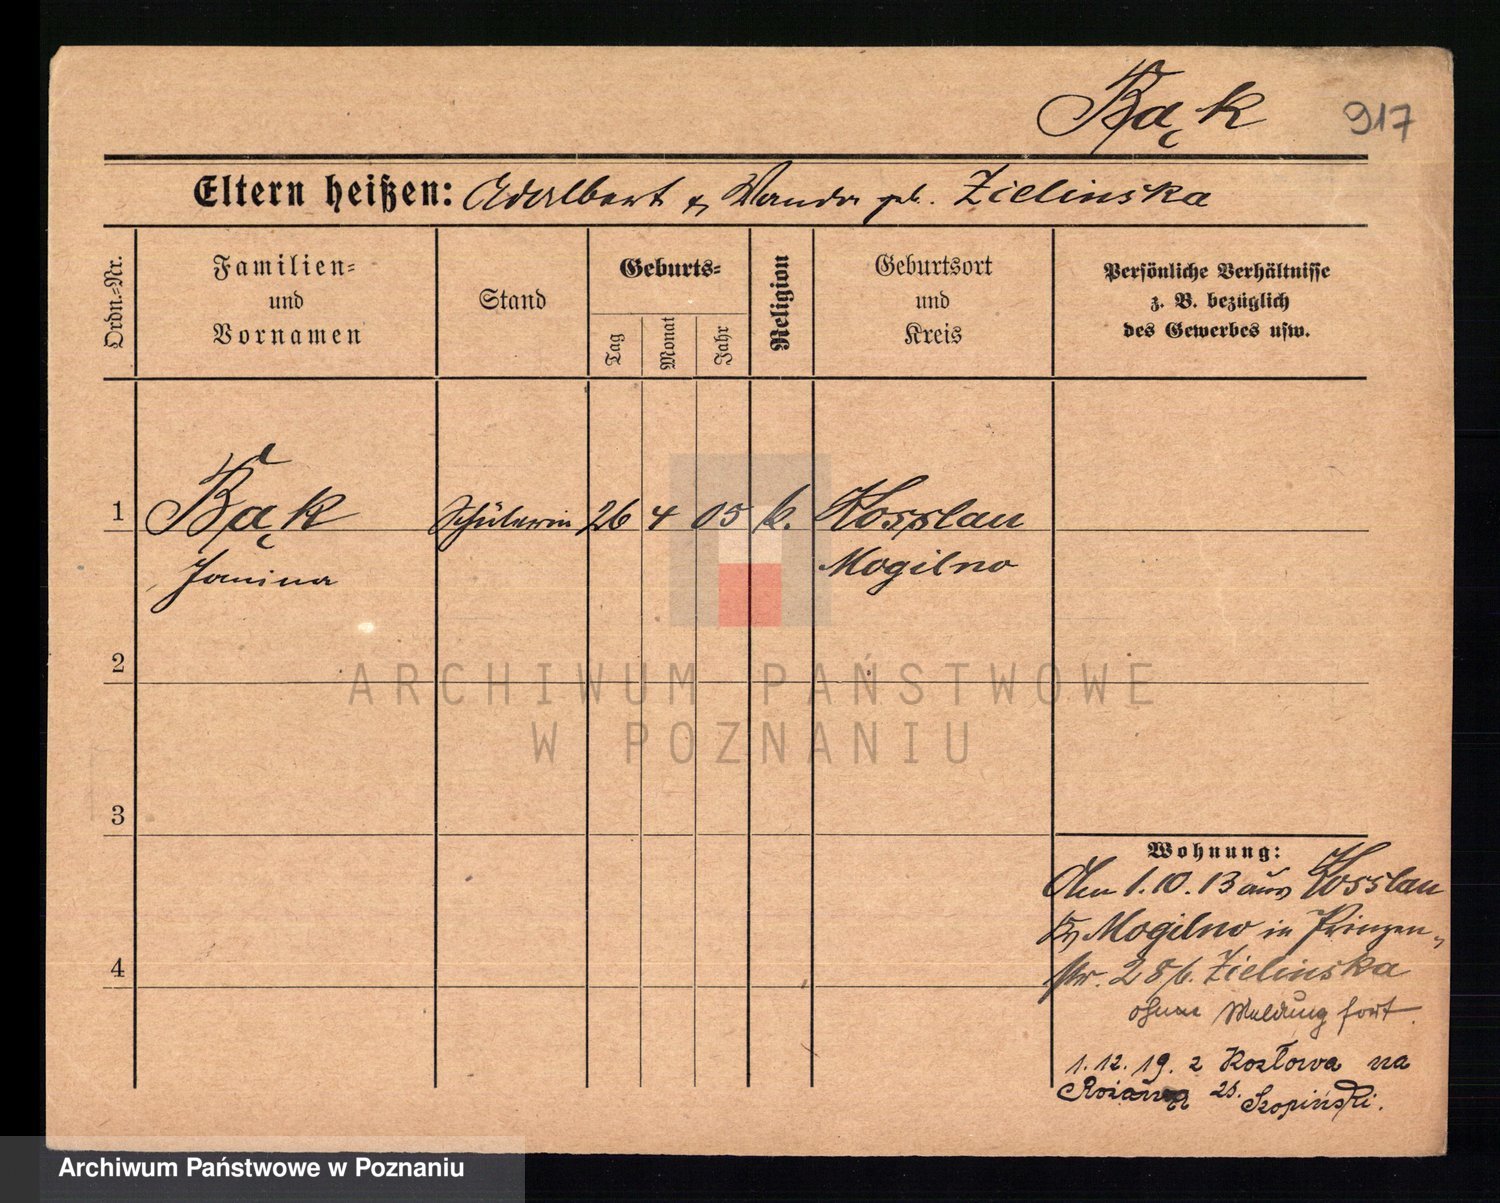 Bąk 917
Eltern heißen: Adalbert & Wanda geb. Zielinska
Ordn.-Nr.
Familien-
und
Vornamen
Stand
Geburts-
Tag
Monat
Jahr
Religion
Geburtsort
und
Kreis
Persönliche Verhältnisse
z. B. bezüglich
des Gewerbes usw.
1 Bąk Schülerin 26 4 05 k. Kosslau
Janina Mogilno
2
ARCHIWUM PAŃSTWOWE
W POZNANIU
3
Wohnung:
Den 1.10.13 aus Kosslau
Kr. Mogilno in Prinzen-
4
str. 2 b/. Zielinska
ohne Meldung fort.
1. 12. 19. z Kozłowa na
25. Szopiński.
Archiwum Państwowe w Poznaniu